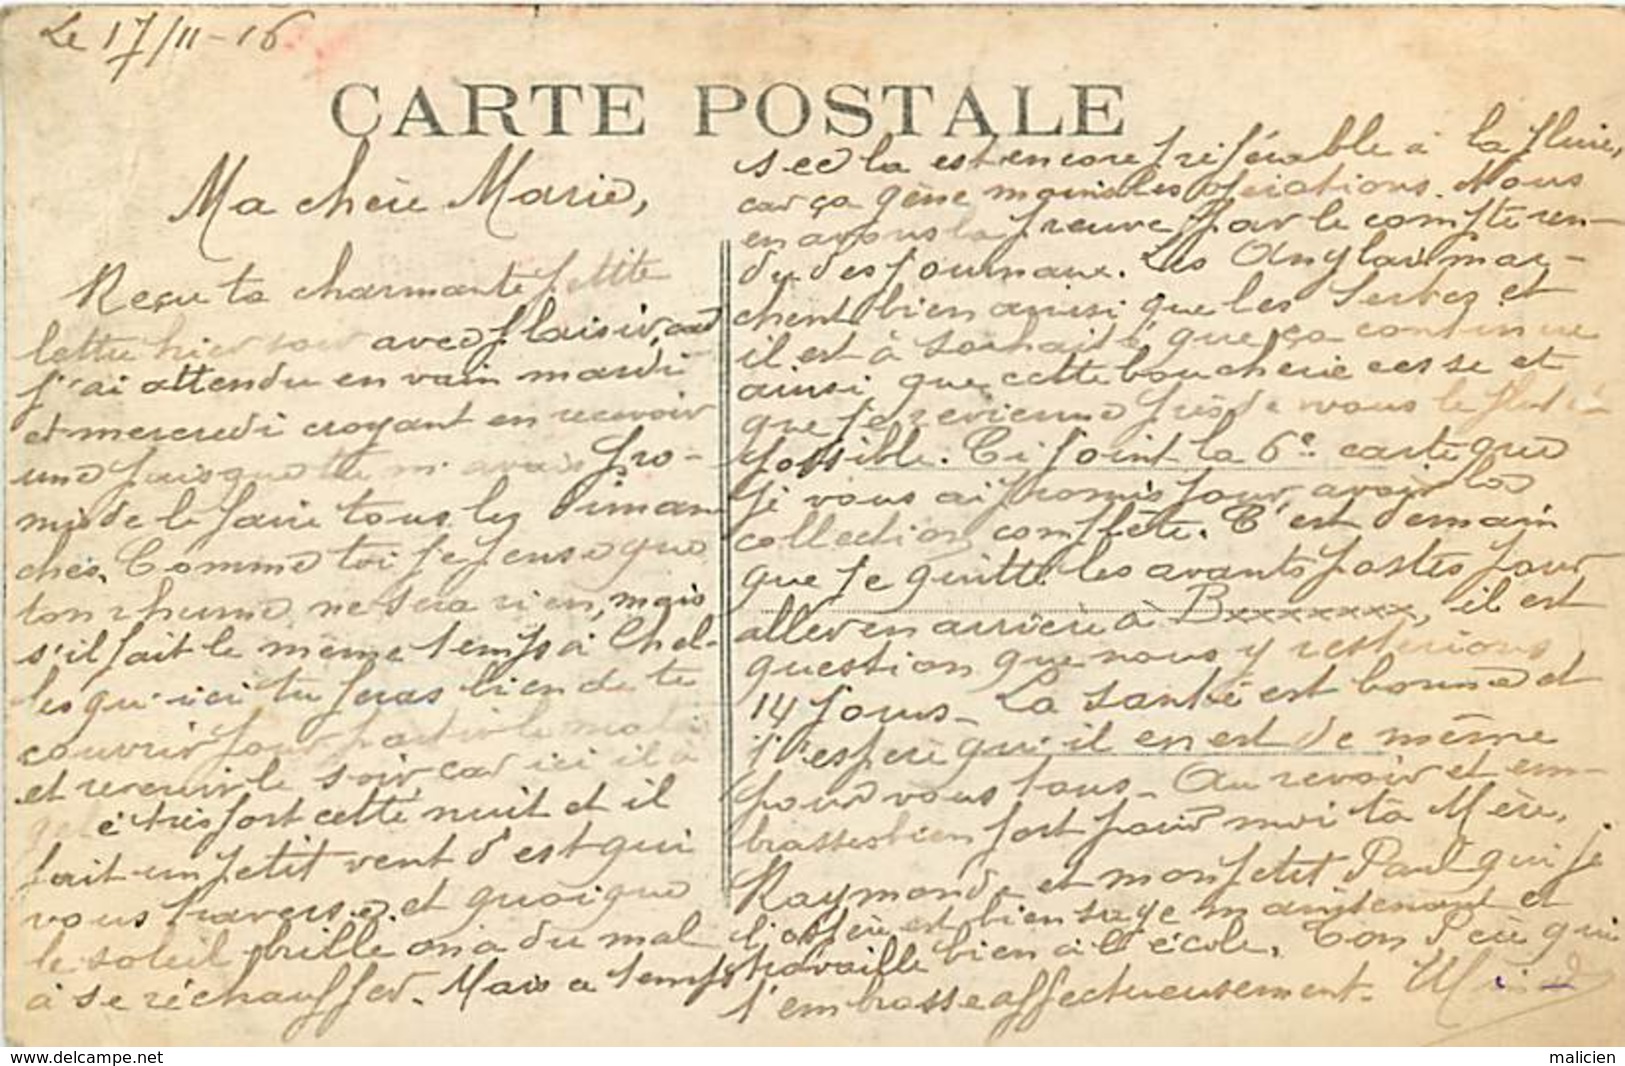 Le 17/11-16
CARTE POSTALE
Ma chère Marie,
Reçu ta charmante petite
lettre hier soir avec plaisir, car
j'ai attendu en vain mardi
et mercredi croyant en recevoir
une puisque tu m'avais pro-
mis de le faire tous les Diman
ches. Comme toi je pense que
ton rhume ne sera rien, mais
s'il fait le même temps à Chel-
les qu'ici tu feras bien de te
couvrir pour partir le matin
et revenir le soir, car ici il a
gelé très fort cette nuit et il
fait un petit vent d'est qui
vous traverse et quoique
le soleil brille on a du mal
à se réchauffer. Mais ce temps
sec la est encore préférable à la pluie,
car ça gène moins les opérations. Nous
en avons la preuve par le compte ren-
du des journaux. Les Anglais mar-
chent bien ainsi que les Serbes et
il est à souhaité que ça continue
ainsi que cette boucherie cesse et
que je revienne près de vous le plutôt
possible. Ci joint la 6e carte que
je vous ai promis pour avoir la
collection complète. C'est demain
que je quitte les avants postes pour
aller en arrière à Bxxxxxxxx, il est
question que nous y resterions
14 jours - La santé est bonne et
j'espère qu'il en est de même
pour vous tous - Au revoir et em-
brasses bien fort pour moi ta Mère,
Raymonde et mon petit Paul qui je
l'espère est bien sage maintenant et
travaille bien à l'école. Ton Père qui
t'embrasse affectueusement.
www.delcampe.net
malicien